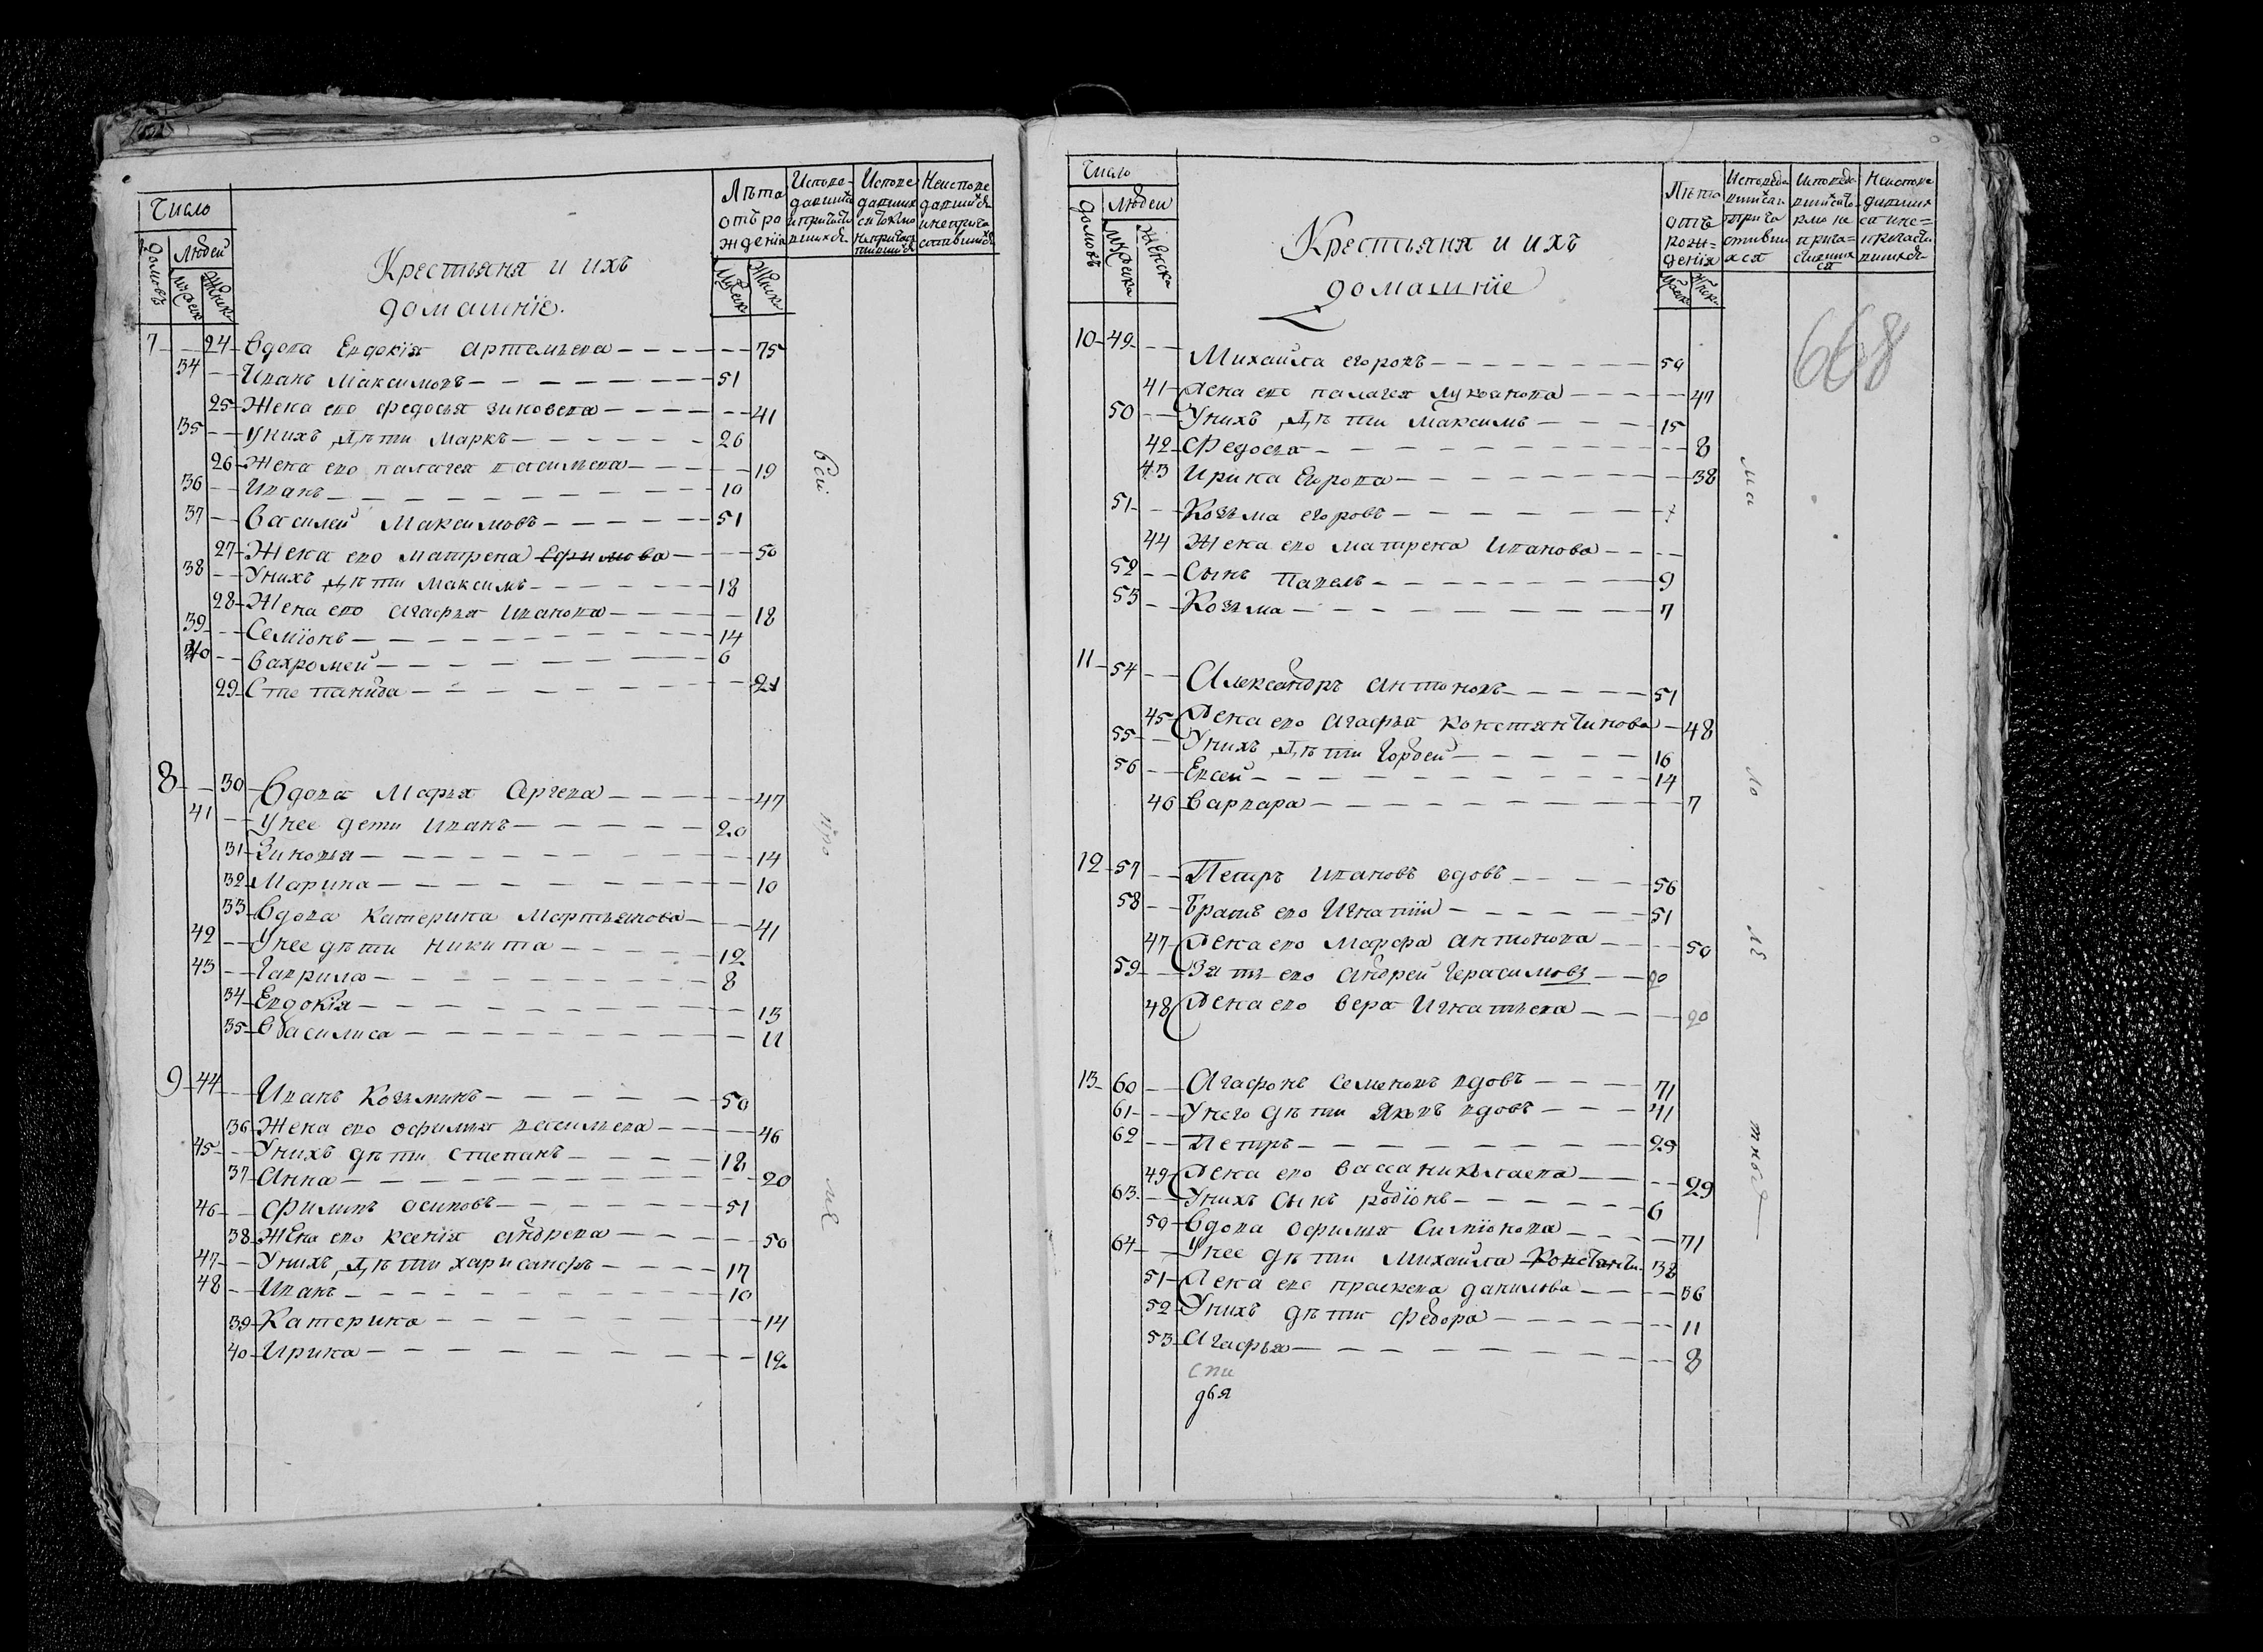 Число
Домовъ
Людей
Мужеск
Женск
Крестьяня и ихъ
домашніе.
Лѣта
отъ ро
жденія
Мужеск
Женск
Исповедавшихся и причастившихся
Исповедавшихся токмо непричастившихся
Неисповедавшихся и непричастившихся
7 24 Вдова Евдокія Артемьева 75
34 Иванъ Максимовъ 51
25 Жена его Федосья Зиновева 41
35 У нихъ дѣти Маркъ 26
26 Жена его палагея василиева 19
36 Иванъ 10
37 Василей Максимовъ 51
27 Жена его матрена Ефимова 50
38 У нихъ дѣти Максимъ 18
28 Жена его агафья иванова 18
39 Семіонъ 14
40 Вахромей 6
29 Степанида 21
8 30 Вдова Марья Сргева 47
41 У нее дети иванъ 20
31 Зиновья 14
32 Марина 10
33 Вдова Катерина Мартьянова 41
42 У нее дѣти никита 12
43 Гаврила 8
34 Евдокія 13
35 Василиса 11
9 44 Иванъ Козьминъ 50
36 Жена его офимья василиева 46
45 У нихъ дѣти степанъ 18
37 Анна 20
46 Филипъ осиповъ 51
38 Жена его ксенія андрева 50
47 У нихъ дѣти харисанфъ 17
48 Иванъ 10
39 Катерина 14
40 Ирина 12
Число
Домовъ
Людей
Мужеска
Женска
Крестьяня и ихъ
домашніе
Лѣта
отъ
рож=
денія
Мужеск
Женск
668
10 49 Михайла егоровъ 50
41 Жена его палагея лукоянова 47
50 У нихъ дѣти Максимъ 15
42 Федосья 8
43 Ирина Егорова 38
51 Козьма егоровъ
44 Жена его матрена иванова
52 Сынъ Павелъ 9
53 Козьма 7
11 54 Александръ антоновъ 51
45 Жена его агафья константинова 48
55 У нихъ дѣти Гордей 16
56 Евсей 14
46 Варвара 7
12 57 Петръ ивановъ вдовъ 56
58 Братъ его Игнатіи 51
47 Жена его Марфа антонова 50
59 Зять его андрей Герасимовъ 20
48 Жена его вера Игнатьева 20
13 60 Агафонъ семеновъ вдовъ 71
61 У него дѣти Яковъ вдовъ 41
62 Петръ 29
49 Жена его васса николаева 29
63 У нихъ сынъ родіонъ 6
50 Вдова офимья Симіонова 71
64 У нее дѣти Михайла Константи 38
51 Жена его праскева данилова 36
52 У нихъ дѣти федора 11
53 Агафья 8